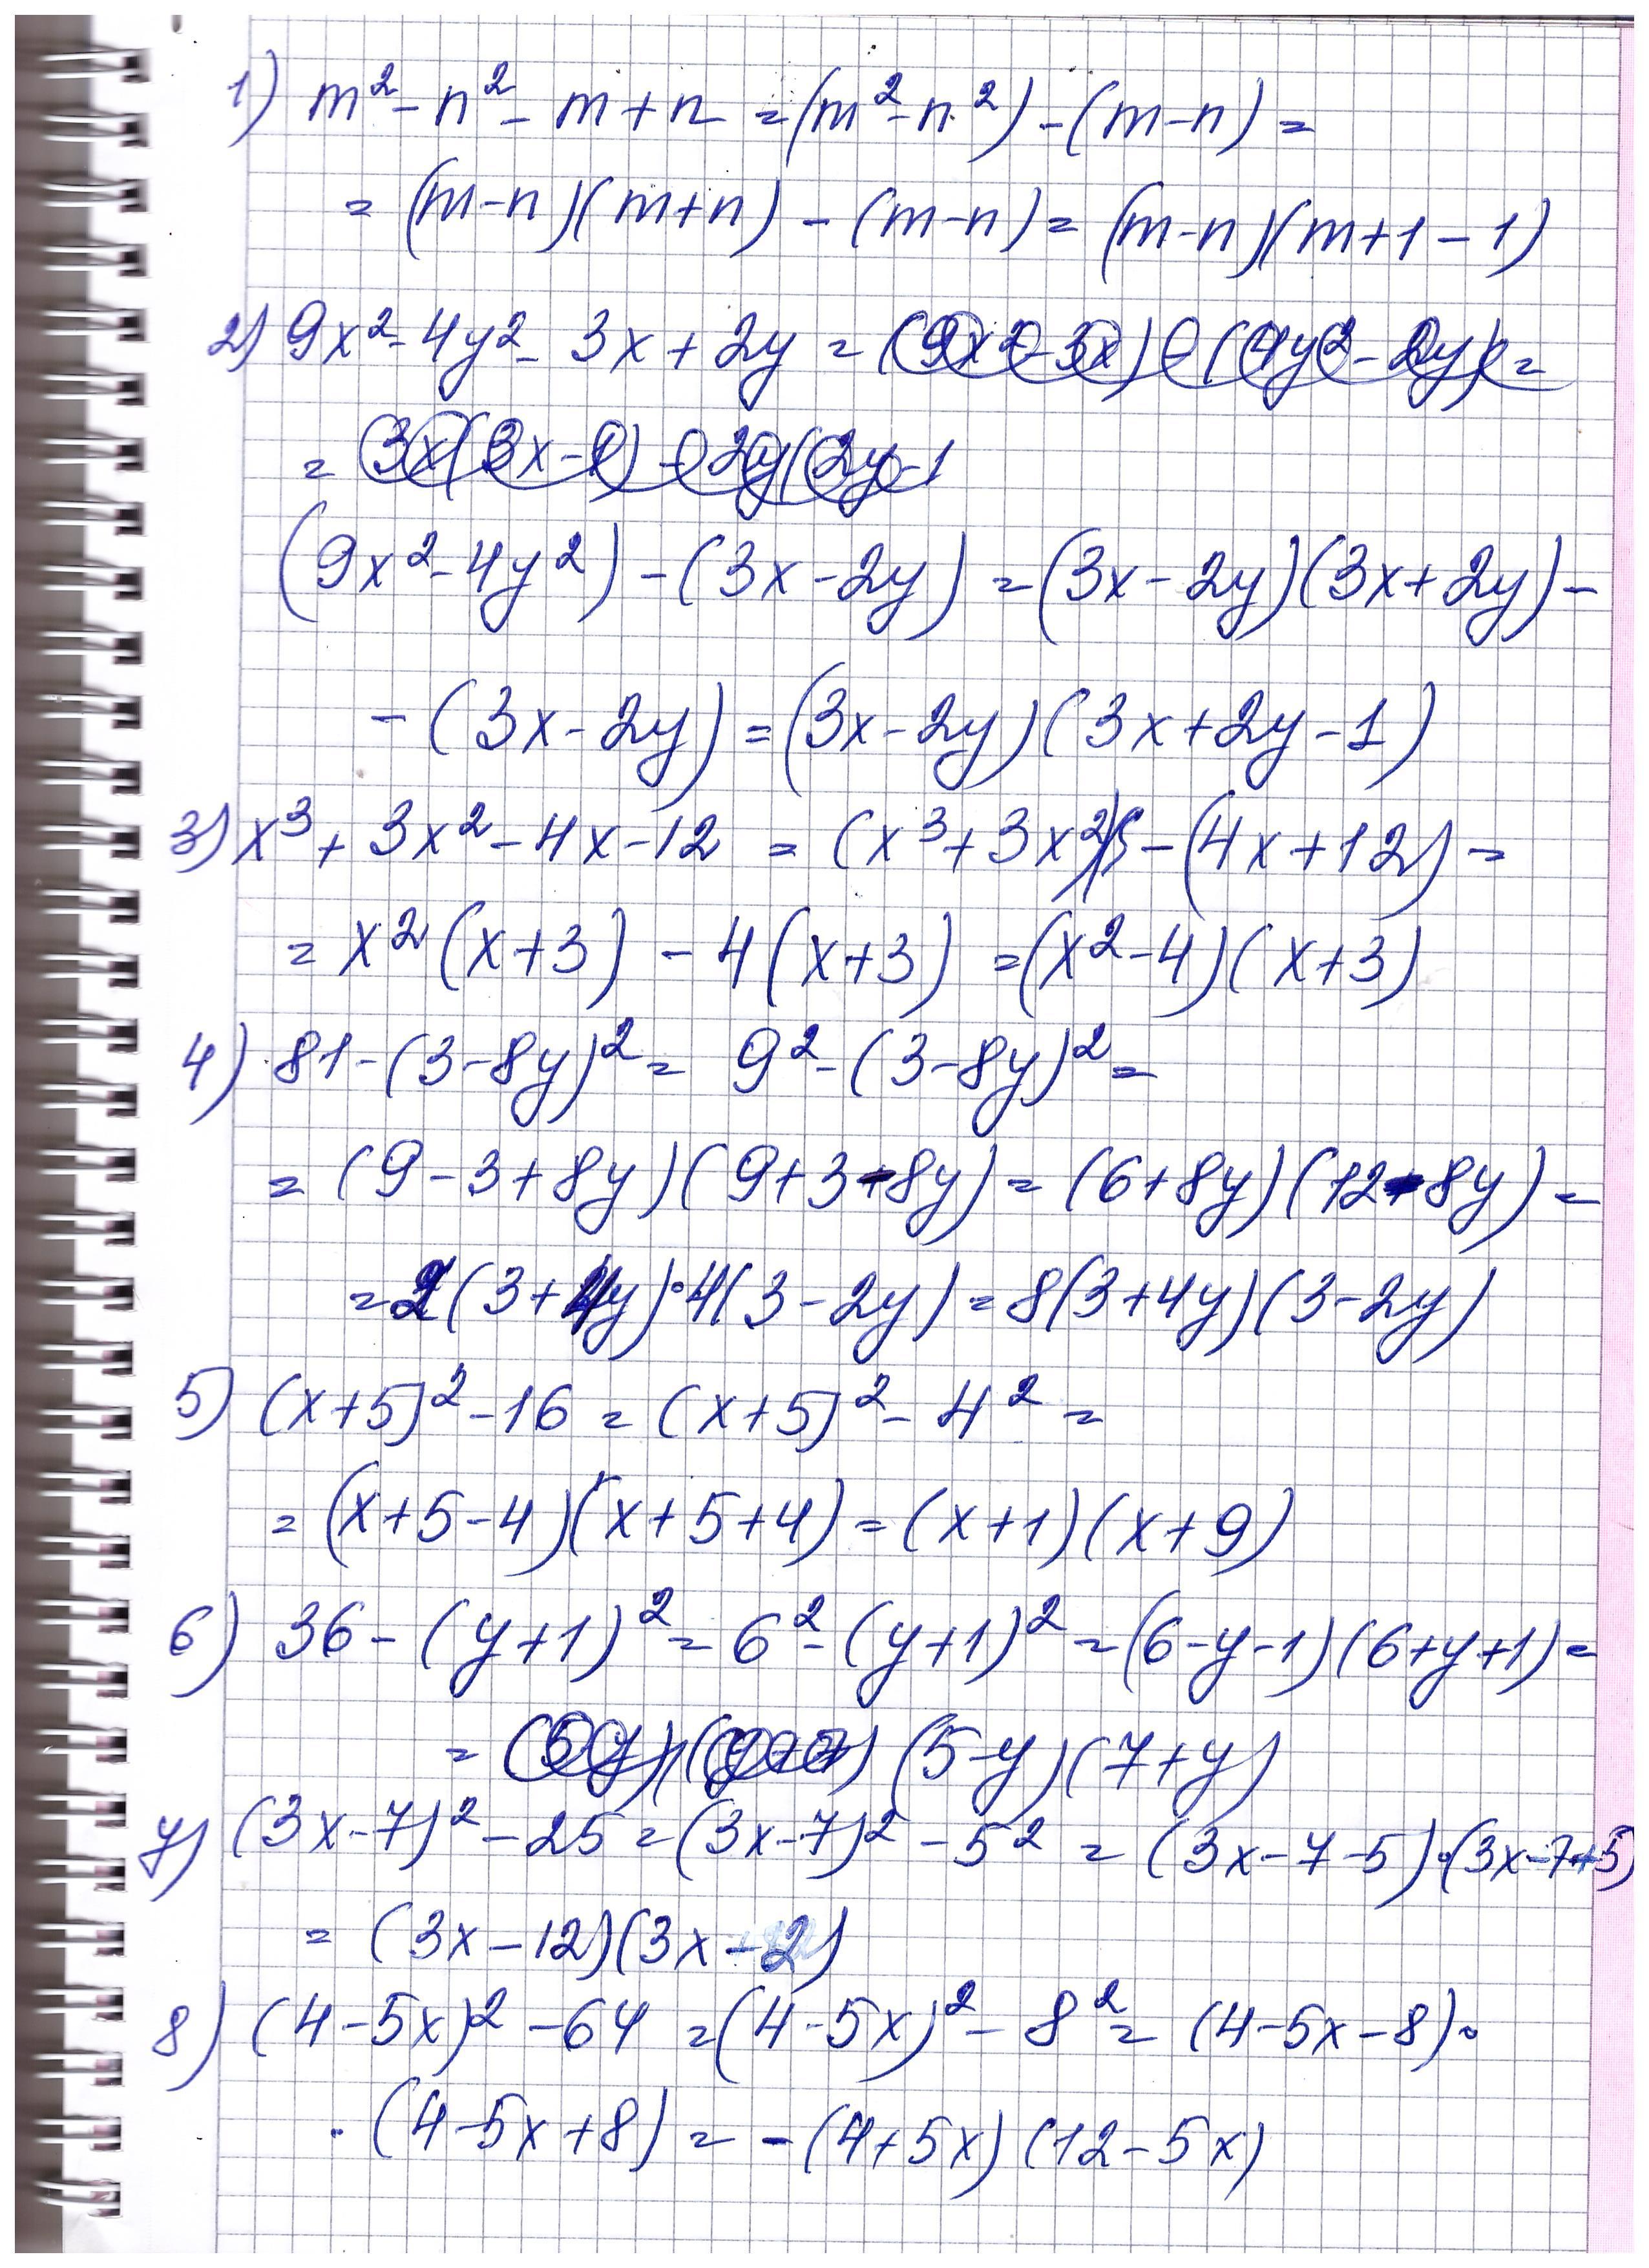 1) m² - n² - m + n = (m² - n²) - (m - n) =
= (m - n)(m + n) - (m - n) = (m - n)(m + 1 - 1)
2) 9x² - 4y² - 3x + 2y = (9x² - 3x) - (4y² - 2y) =
= 3x(3x - 1) - 2y(2y - 1
(9x² - 4y²) - (3x - 2y) = (3x - 2y)(3x + 2y) -
- (3x - 2y) = (3x - 2y)(3x + 2y - 1)
3) x³ + 3x² - 4x - 12 = (x³ + 3x²) - (4x + 12) =
= x²(x + 3) - 4(x + 3) = (x² - 4)(x + 3)
4) 81 - (3 - 8y)² = 9² - (3 - 8y)² =
= (9 - 3 + 8y)(9 + 3 - 8y) = (6 + 8y)(12 - 8y) =
= 2(3 + 4y)·4(3 - 2y) = 8(3 + 4y)(3 - 2y)
5) (x + 5)² - 16 = (x + 5)² - 4² =
= (x + 5 - 4)(x + 5 + 4) = (x + 1)(x + 9)
6) 36 - (y + 1)² = 6² - (y + 1)² = (6 - y - 1)(6 + y + 1) =
= (5 - y)(7 + y)
7) (3x - 7)² - 25 = (3x - 7)² - 5² = (3x - 7 - 5)·(3x - 7 + 5)
= (3x - 12)(3x - 2)
8) (4 - 5x)² - 64 = (4 - 5x)² - 8² = (4 - 5x - 8)·
·(4 - 5x + 8) = -(4 + 5x)(12 - 5x)